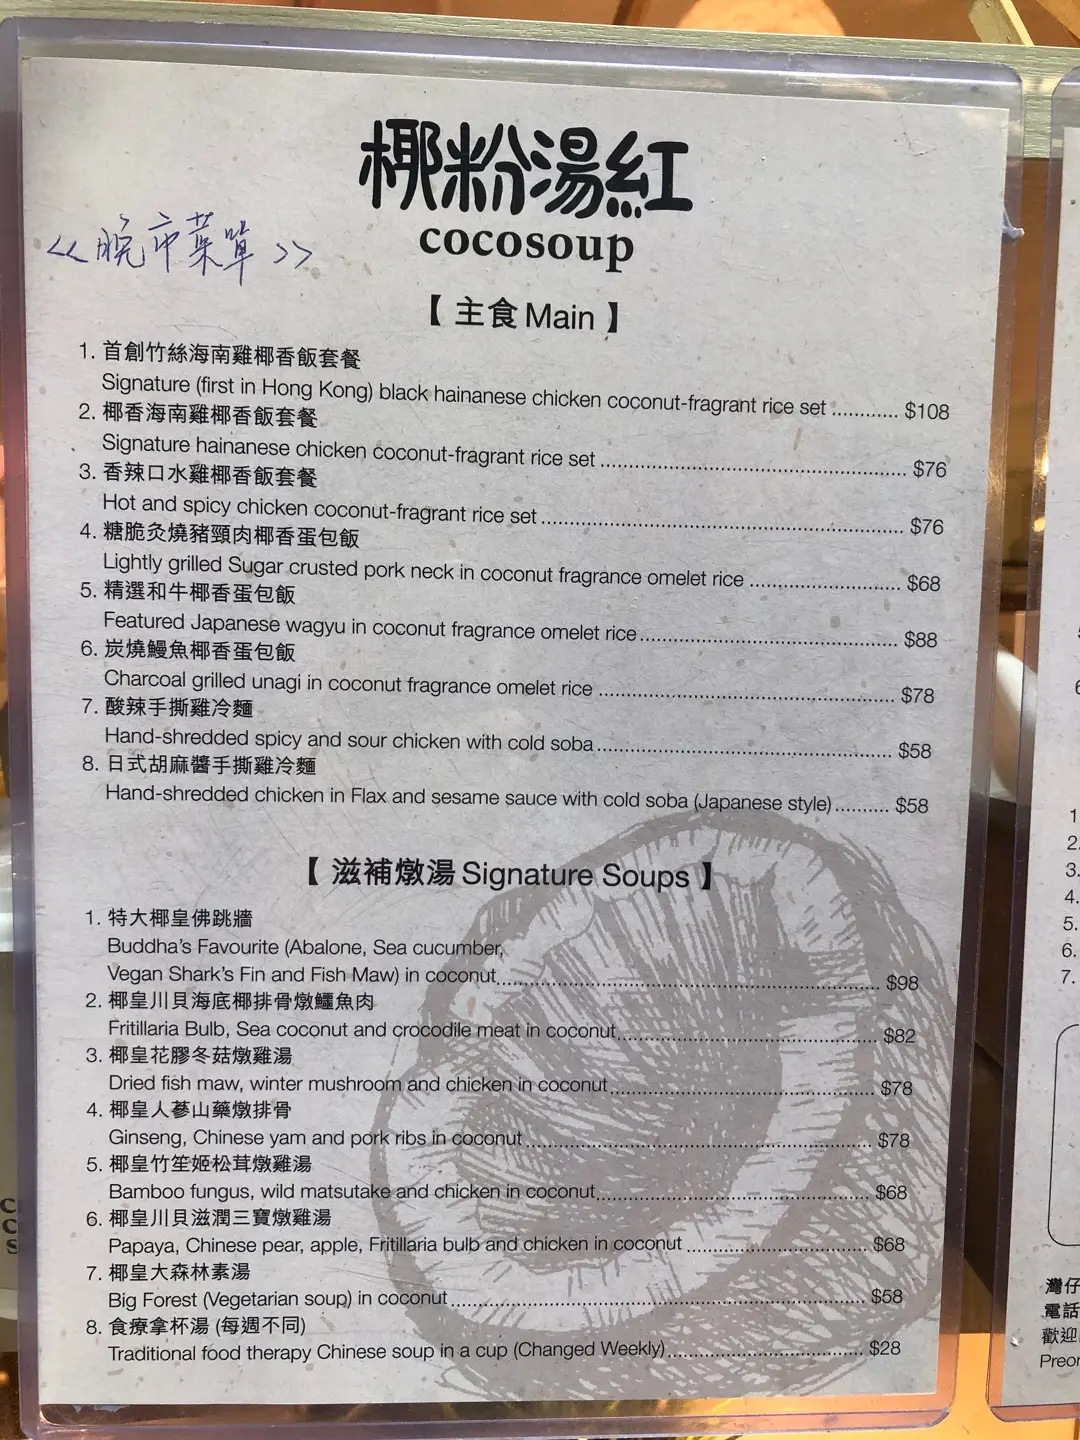 椰粉湯紅
cocosoup
<<晚市菜單>>
【 主食 Main 】
1. 首創竹絲海南雞椰香飯套餐
Signature (first in Hong Kong) black hainanese chicken coconut-fragrant rice set ............ $108
2. 椰香海南雞椰香飯套餐
Signature hainanese chicken coconut-fragrant rice set ............ $76
3. 香辣口水雞椰香飯套餐
Hot and spicy chicken coconut-fragrant rice set ............ $76
4. 糖脆灸燒豬頸肉椰香蛋包飯
Lightly grilled Sugar crusted pork neck in coconut fragrance omelet rice ............ $68
5. 精選和牛椰香蛋包飯
Featured Japanese wagyu in coconut fragrance omelet rice ............ $88
6. 炭燒鰻魚椰香蛋包飯
Charcoal grilled unagi in coconut fragrance omelet rice ............ $78
7. 酸辣手撕雞冷麵
Hand-shredded spicy and sour chicken with cold soba ............ $58
8. 日式胡麻醬手撕雞冷麵
Hand-shredded chicken in Flax and sesame sauce with cold soba (Japanese style) .......... $58
【 滋補燉湯 Signature Soups 】
1. 特大椰皇佛跳牆
Buddha's Favourite (Abalone, Sea cucumber,
Vegan Shark's Fin and Fish Maw) in coconut ............ $98
2. 椰皇川貝海底椰排骨燉鱷魚肉
Fritillaria Bulb, Sea coconut and crocodile meat in coconut ............ $82
3. 椰皇花膠冬菇燉雞湯
Dried fish maw, winter mushroom and chicken in coconut ............ $78
4. 椰皇人蔘山藥燉排骨
Ginseng, Chinese yam and pork ribs in coconut ............ $78
5. 椰皇竹笙姬松茸燉雞湯
Bamboo fungus, wild matsutake and chicken in coconut ............ $68
6. 椰皇川貝滋潤三寶燉雞湯
Papaya, Chinese pear, apple, Fritillaria bulb and chicken in coconut ............ $68
7. 椰皇大森林素湯
Big Forest (Vegetarian soup) in coconut ............ $58
8. 食療拿杯湯 (每週不同)
Traditional food therapy Chinese soup in a cup (Changed Weekly) ............ $28
1
2.
3.
4.
5.
6.
7.
灣仔
電話
歡迎
Preor